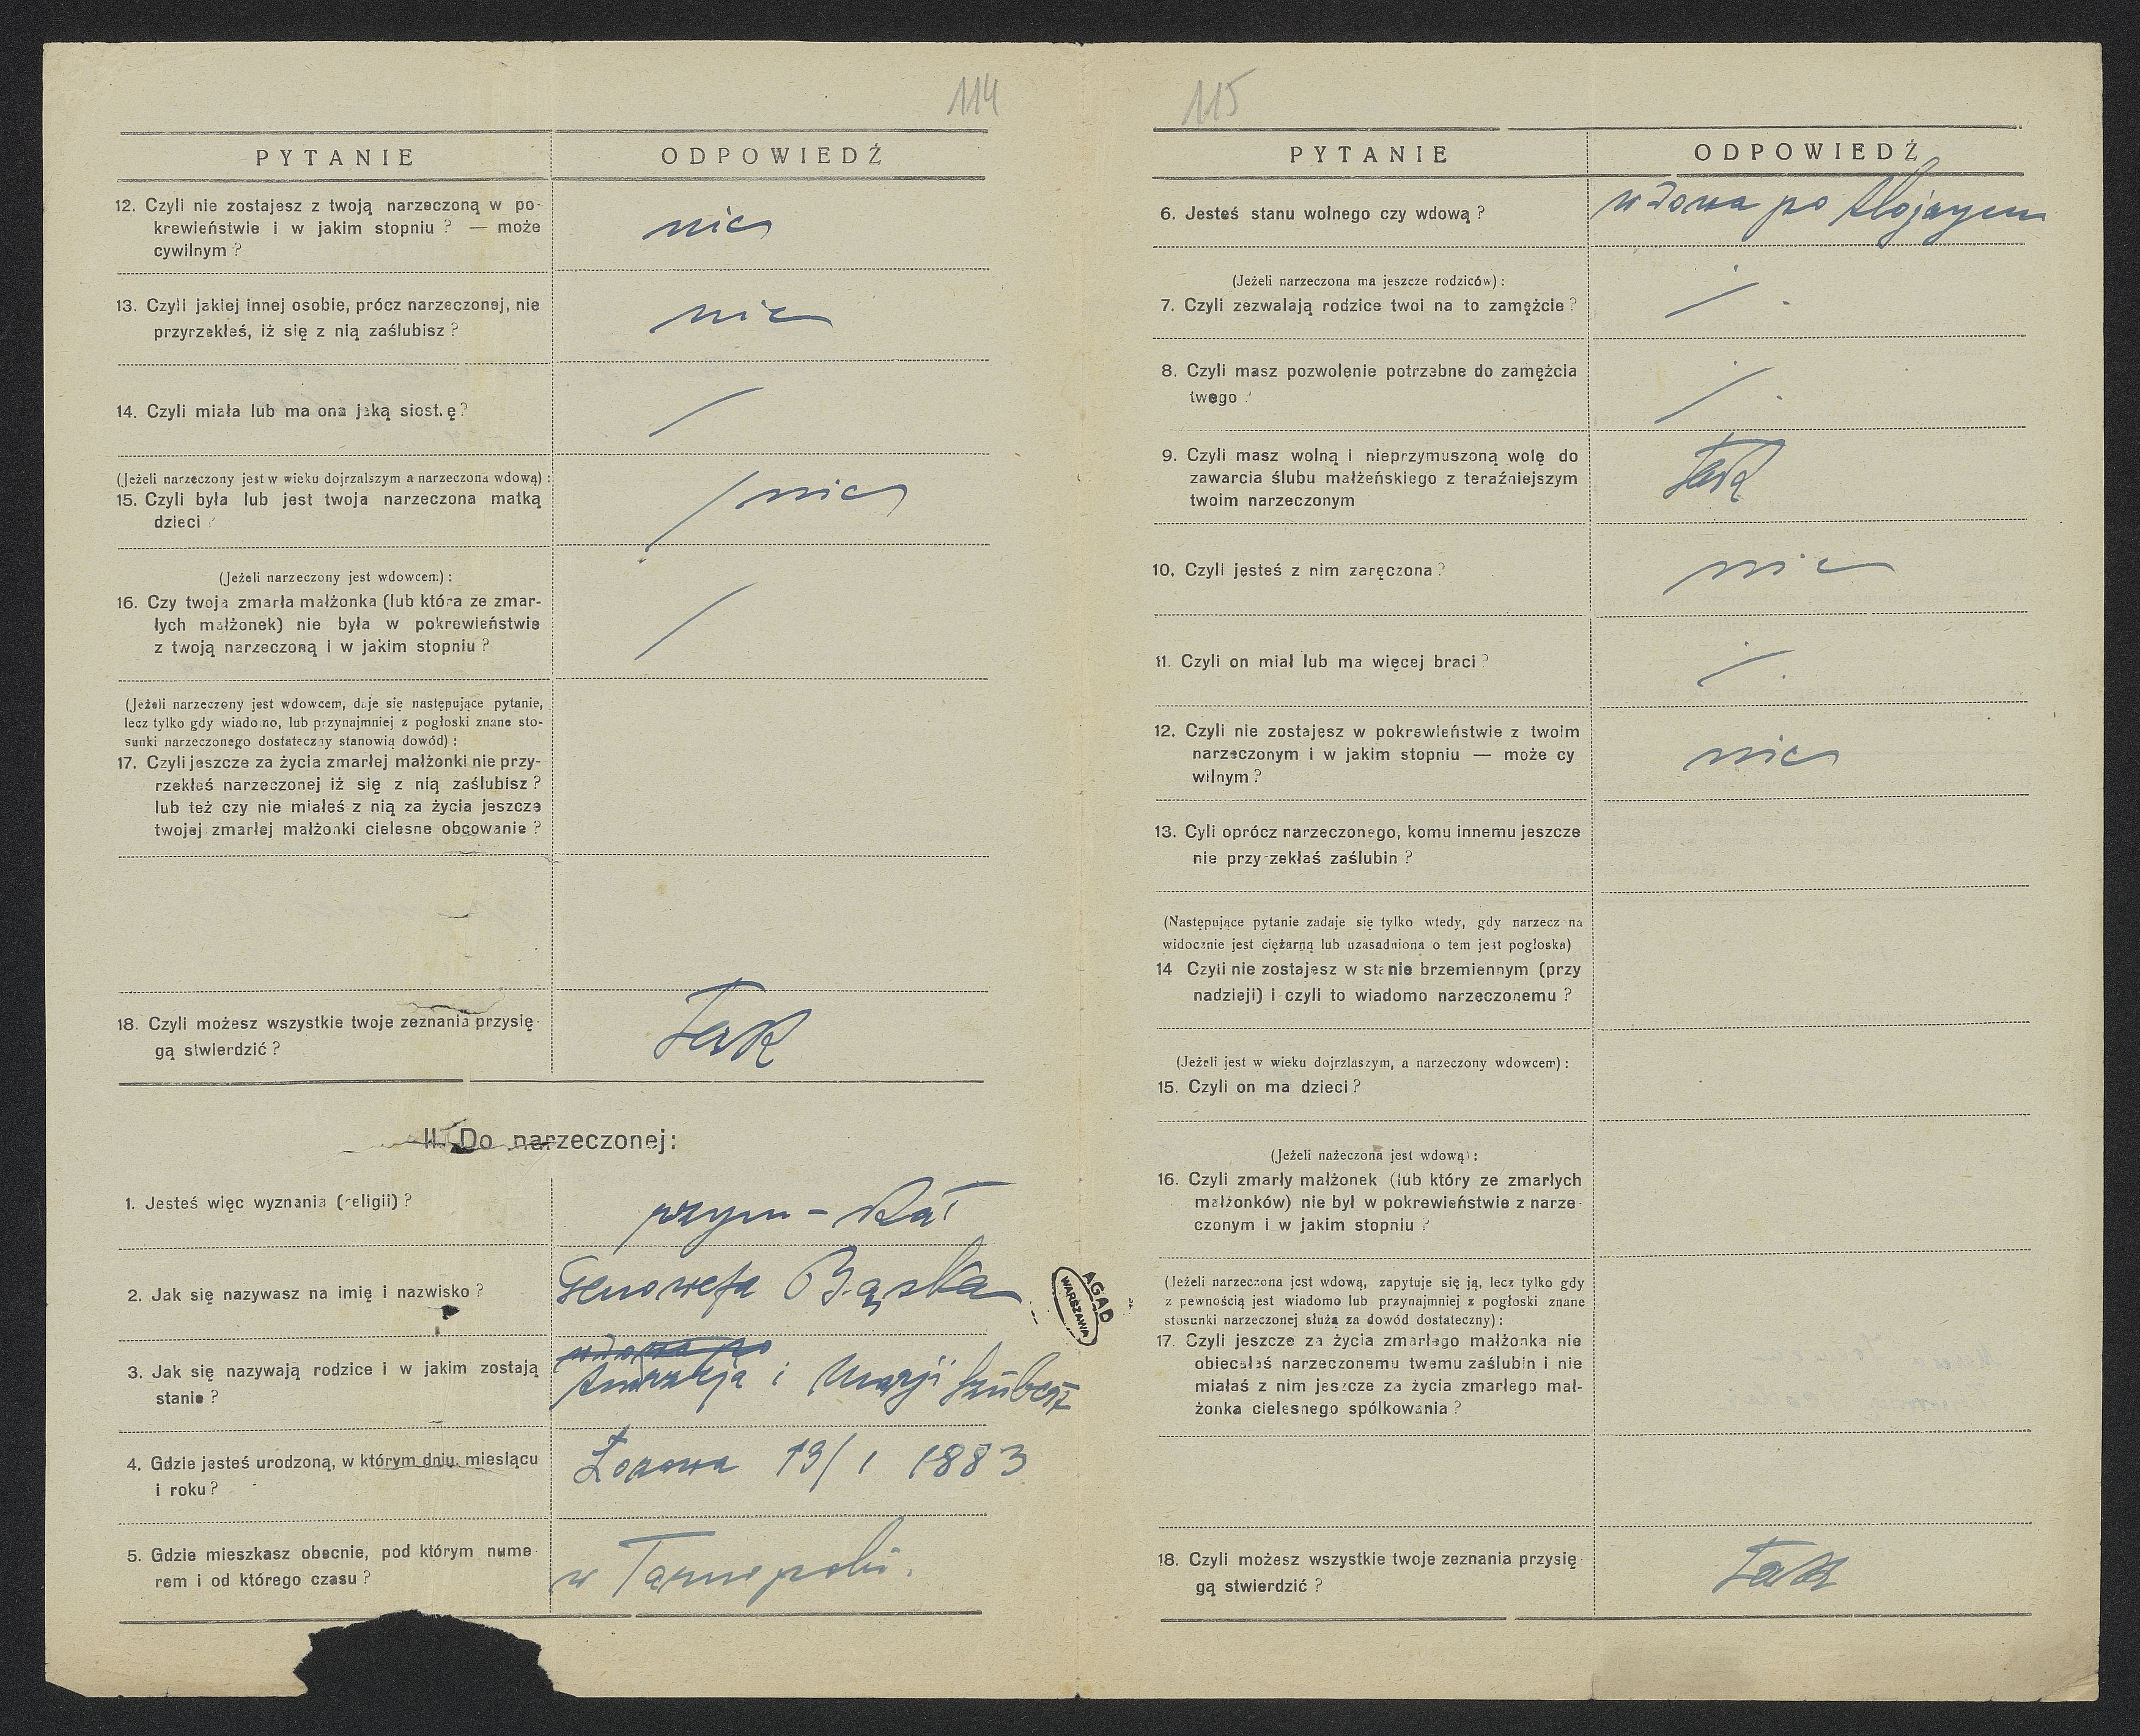 114
PYTANIE ODPOWIEDŹ
12. Czyli nie zostajesz z twoją narzeczoną w po-
krewieństwie i w jakim stopniu ? — może
cywilnym ?
nie
13. Czyli jakiej innej osobie, prócz narzeczonej, nie
przyrzekłeś, iż się z nią zaślubisz ?
nie
14. Czyli miała lub ma ona jaką siostrę ?
/
(Jeżeli narzeczony jest w wieku dojrzalszym a narzeczona wdową) :
15. Czyli była lub jest twoja narzeczona matką
dzieci ?
/ nie
(Jeżeli narzeczony jest wdowcem) :
16. Czy twoja zmarła małżonka (lub która ze zmar-
łych małżonek) nie była w pokrewieństwie
z twoją narzeczoną i w jakim stopniu ?
/
(Jeżeli narzeczony jest wdowcem, daje się następujące pytanie,
lecz tylko gdy wiadomo, lub przynajmniej z pogłoski znane sto-
sunki narzeczonego dostateczny stanowią dowód) :
17. Czyli jeszcze za życia zmarłej małżonki nie przy-
rzekłeś narzeczonej iż się z nią zaślubisz ?
lub też czy nie miałeś z nią za życia jeszcze
twojej zmarłej małżonki cielesne obcowanie ?
18. Czyli możesz wszystkie twoje zeznania przysię-
gą stwierdzić ?
Tak
II. Do narzeczonej:
1. Jesteś więc wyznania (religii) ?
rzym - kat
2. Jak się nazywasz na imię i nazwisko ?
Genowefa Bąska
3. Jak się nazywają rodzice i w jakim zostają
stanie ?
wdowa po
Andrzeja i Marji
4. Gdzie jesteś urodzoną, w którym dniu, miesiącu
i roku ?
13/1 1883
5. Gdzie mieszkasz obecnie, pod którym nume-
rem i od którego czasu ?
w Tarnopolu.
AGAD
WARSZAWA
115
PYTANIE ODPOWIEDŹ
6. Jesteś stanu wolnego czy wdową ?
wdowa po Alojzym
(Jeżeli narzeczona ma jeszcze rodziców) :
7. Czyli zezwalają rodzice twoi na to zamężcie ?
8. Czyli masz pozwolenie potrzebne do zamężcia
twego ?
9. Czyli masz wolną i nieprzymuszoną wolę do
zawarcia ślubu małżeńskiego z teraźniejszym
twoim narzeczonym
Tak
10. Czyli jesteś z nim zaręczona ?
nie
11. Czyli on miał lub ma więcej braci ?
12. Czyli nie zostajesz w pokrewieństwie z twoim
narzeczonym i w jakim stopniu — może cy
wilnym ?
nie
13. Cyli oprócz narzeczonego, komu innemu jeszcze
nie przyrzekłaś zaślubin ?
(Następujące pytanie zadaje się tylko wtedy, gdy narzeczona
widocznie jest ciężarną lub uzasadniona o tem jest pogłoska)
14 Czyli nie zostajesz w stanie brzemiennym (przy
nadzieji) i czyli to wiadomo narzeczonemu ?
(Jeżeli jest w wieku dojrzlaszym, a narzeczony wdowcem) :
15. Czyli on ma dzieci ?
(Jeżeli nażeczona jest wdową) :
16. Czyli zmarły małżonek (lub który ze zmarłych
małżonków) nie był w pokrewieństwie z narze-
czonym i w jakim stopniu ?
(Jeżeli narzeczona jest wdową, zapytuje się ją, lecz tylko gdy
z pewnością jest wiadomo lub przynajmniej z pogłoski znane
stosunki narzeczonej służą za dowód dostateczny) :
17. Czyli jeszcze za życia zmarłego małżonka nie
obiecałaś narzeczonemu twemu zaślubin i nie
miałaś z nim jeszcze za życia zmarłego mał-
żonka cielesnego spółkowania ?
18. Czyli możesz wszystkie twoje zeznania przysię-
gą stwierdzić ?
Tak